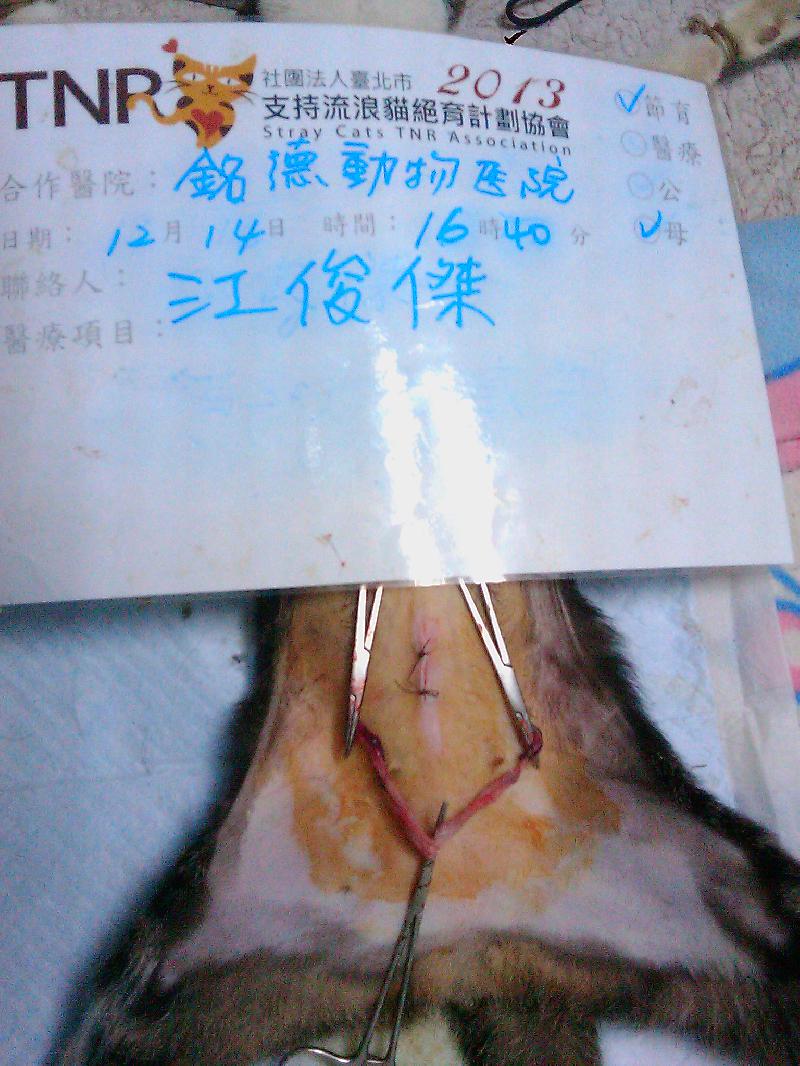 TNR 社團法人臺北市 2013
支持流浪貓絕育計劃協會
Stray Cats TNR Association
節育
醫療
公
母
合作醫院：銘德動物医院
日期：12月14日 時間：16時40分
聯絡人：江俊傑
醫療項目：